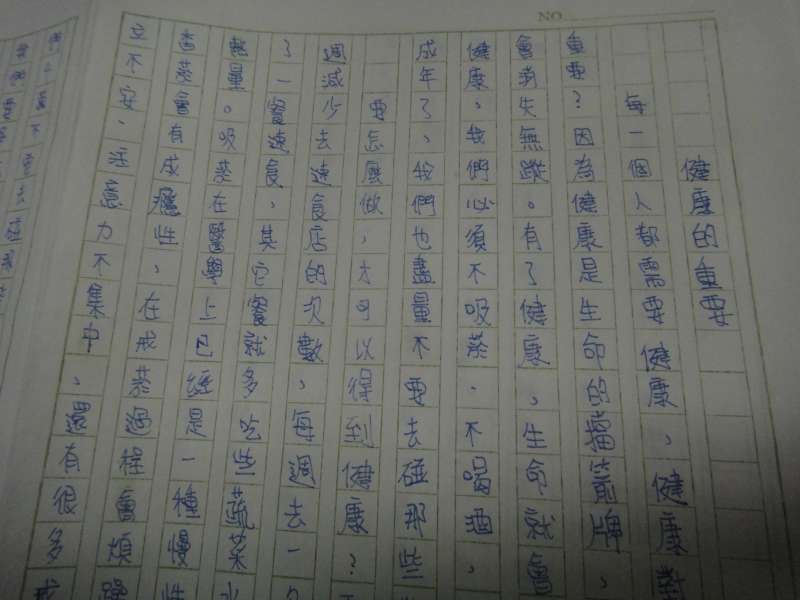 NO.
健康的重要
每一個人都需要健康,健康
重要?因為健康是生命的擋箭牌,
會消失無蹤。有了健康,生命就會
健康,我們必須不吸菸、不喝酒,
成年了,我們也盡量不要去碰那些
要怎麼做,才可以得到健康?
週減少去速食店的次數,每週去一
了一餐速食,其它餐就多吃些蔬菜水
量。吸菸在醫學上已經是一種慢性
香菸會有成癮性,在戒菸過程會煩躁
立不安、注意力不集中,還有很多戒